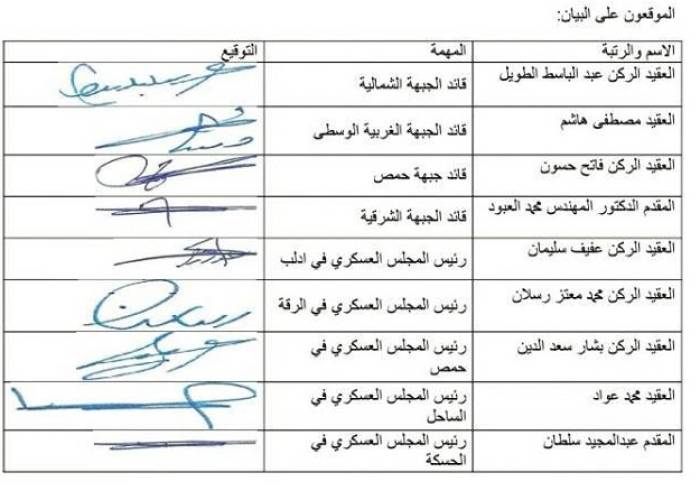 الموقعون على البيان:
الاسم والرتبة المهمة التوقيع
العقيد الركن عبد الباسط الطويل قائد الجبهة الشمالية
العقيد مصطفى هاشم قائد الجبهة الغربية الوسطى
العقيد الركن فاتح حسون قائد جبهة حمص
المقدم الدكتور المهندس محمد العبود قائد الجبهة الشرقية
العقيد الركن عفيف سليمان رئيس المجلس العسكري في ادلب
العقيد الركن محمد معتز رسلان رئيس المجلس العسكري في الرقة
العقيد الركن بشار سعد الدين رئيس المجلس العسكري في
حمص
العقيد محمد عواد رئيس المجلس العسكري في
الساحل
المقدم عبدالمجيد سلطان رئيس المجلس العسكري في
الحسكة